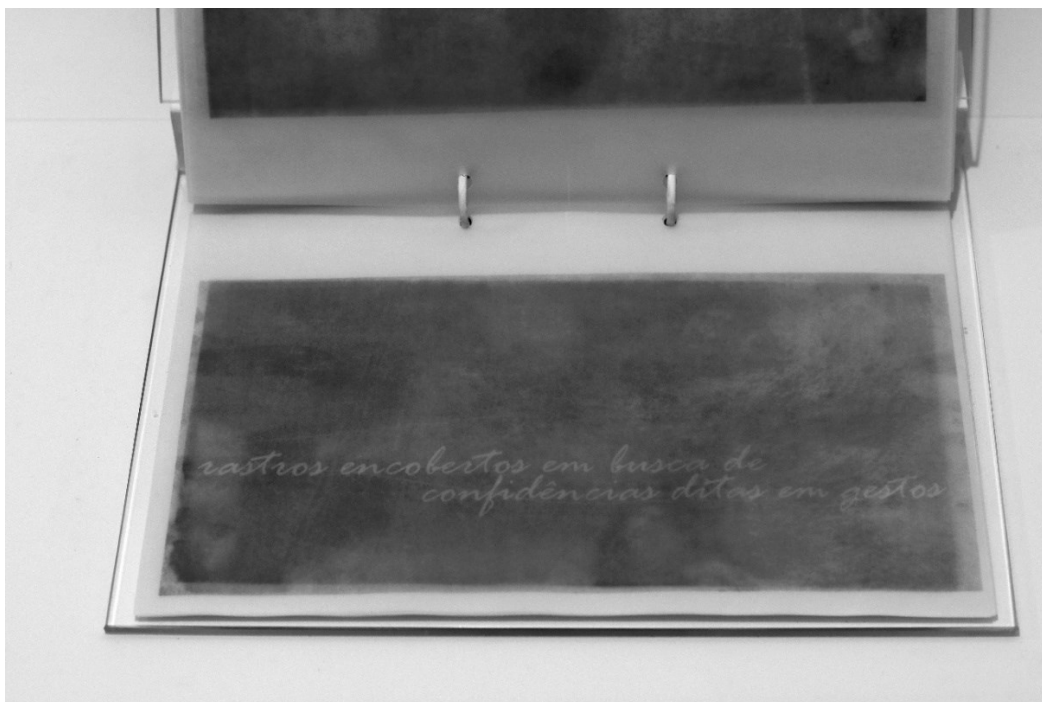 rastros encobertos em busca de
confidências ditas em gestos